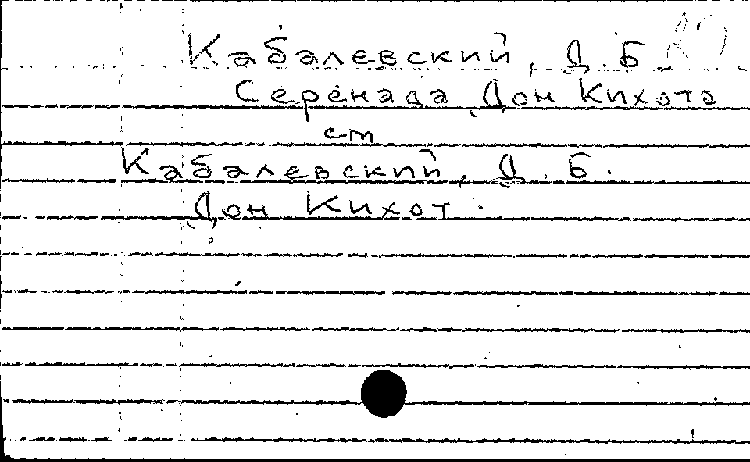 Кабалевский, Д. Б.
Серенада Дон Кихота
см
Кабалевский, Д. Б.
Дон Кихот.